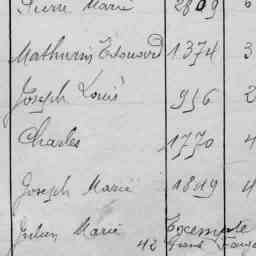 Pierre Marie 2809 6
Mathurin Edouard 1374 3
Joseph Louis 956 2
Charles 1770 4
Joseph Marie 1819 4
Julien Marie Exempte
42